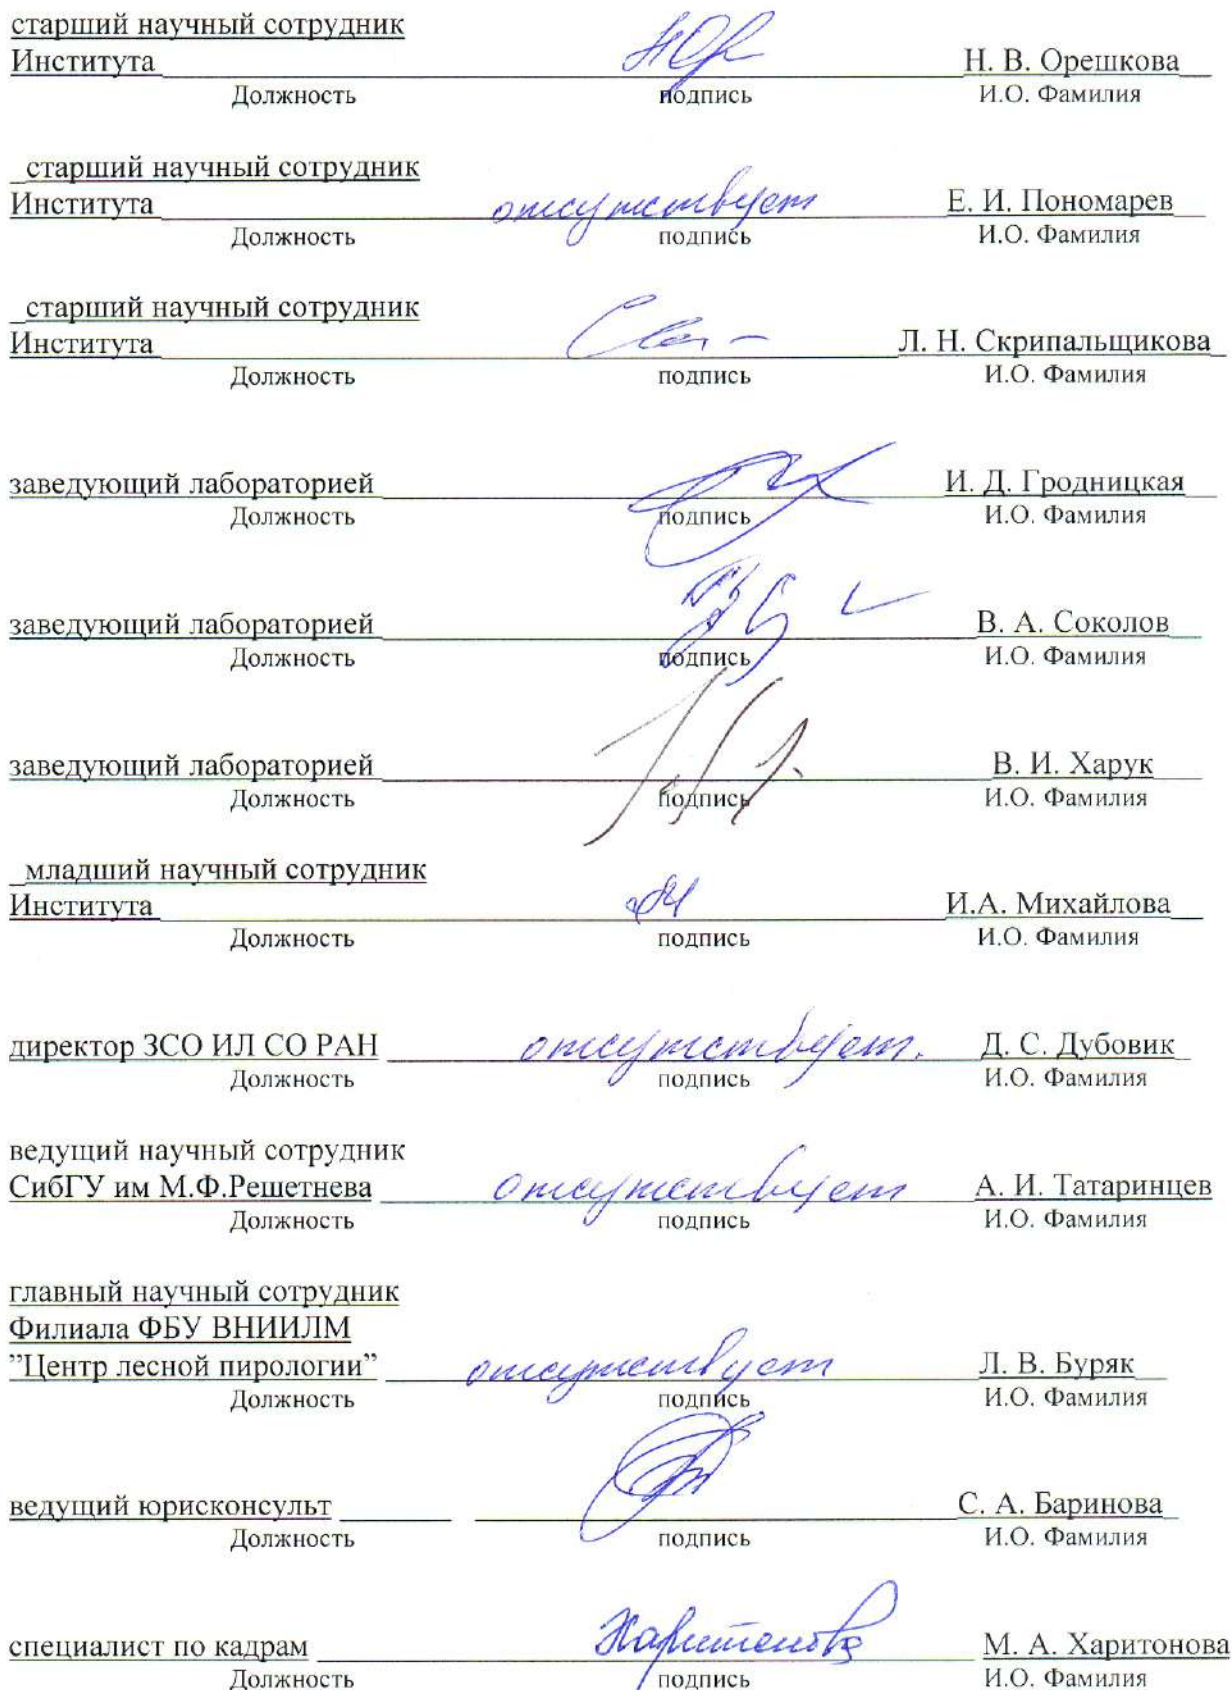 старший научный сотрудник
Института Н. В. Орешкова
Должность подпись И.О. Фамилия
старший научный сотрудник
Института отсутствует Е. И. Пономарев
Должность подпись И.О. Фамилия
старший научный сотрудник
Института Л. Н. Скрипальщикова
Должность подпись И.О. Фамилия
заведующий лабораторией И. Д. Гродницкая
Должность подпись И.О. Фамилия
заведующий лабораторией В. А. Соколов
Должность подпись И.О. Фамилия
заведующий лабораторией В. И. Харук
Должность подпись И.О. Фамилия
младший научный сотрудник
Института И.А. Михайлова
Должность подпись И.О. Фамилия
директор ЗСО ИЛ СО РАН отсутствует. Д. С. Дубовик
Должность подпись И.О. Фамилия
ведущий научный сотрудник
СибГУ им М.Ф.Решетнева отсутствует А. И. Татаринцев
Должность подпись И.О. Фамилия
главный научный сотрудник
Филиала ФБУ ВНИИЛМ
”Центр лесной пирологии” отсутствует Л. В. Буряк
Должность подпись И.О. Фамилия
ведущий юрисконсульт С. А. Баринова
Должность подпись И.О. Фамилия
специалист по кадрам Харитонова М. А. Харитонова
Должность подпись И.О. Фамилия